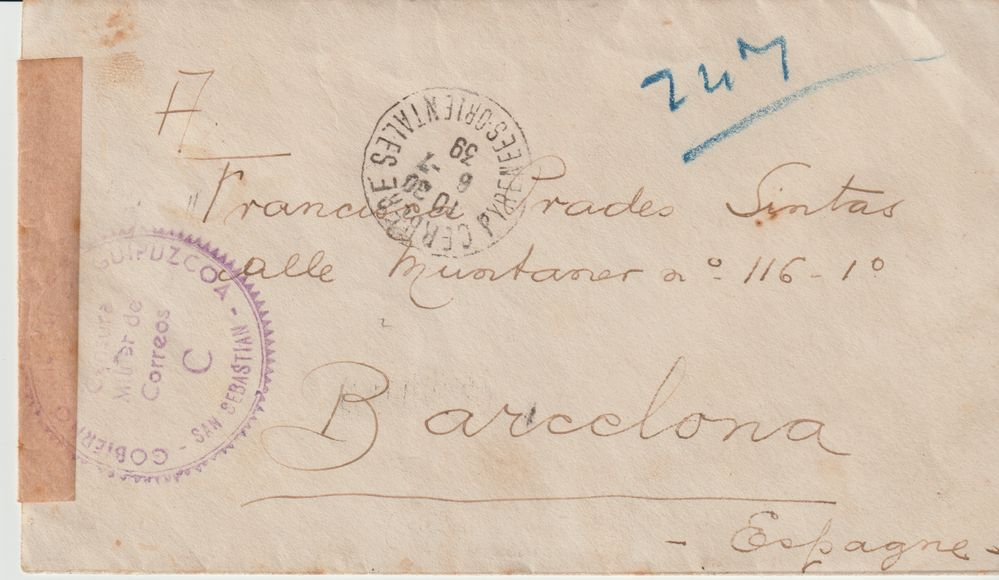 247
A
Francisca Prades Sintas
calle Muntaner nº 116-1º
Barcelona
- Espagne -
CERBERE PYRENEES-ORIENTALES
10 30
6 - 7
39
GUIPUZCOA - SAN SEBASTIAN - GOBIERNO
Censura
Militar de
Correos
C